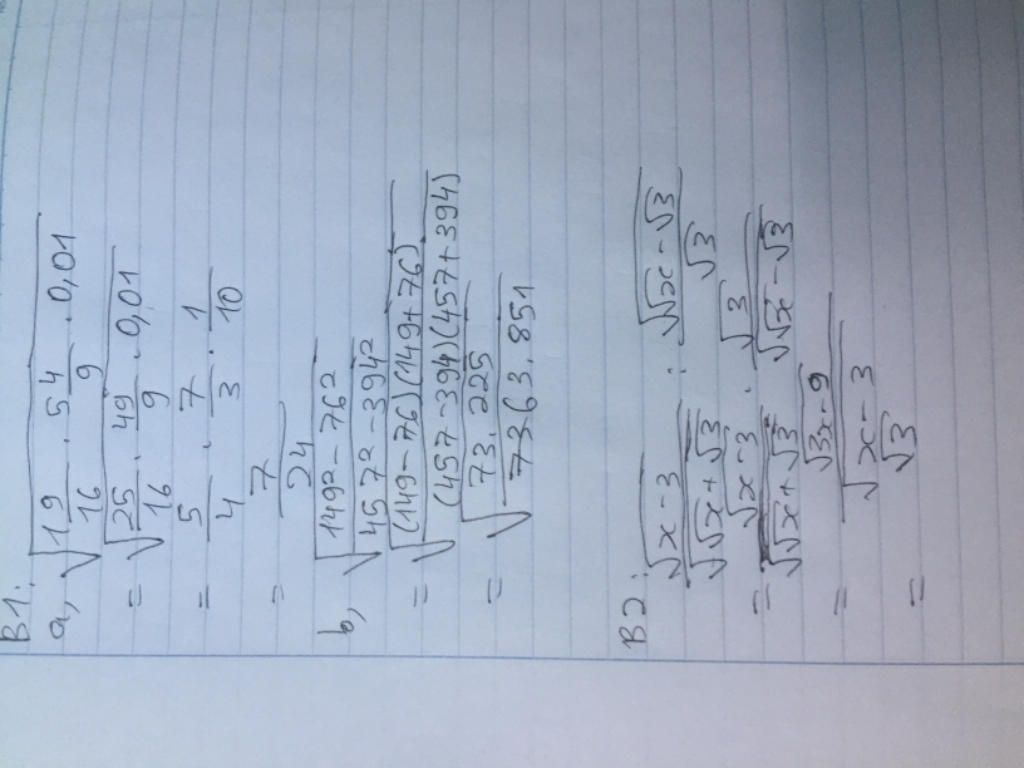 B1.
a, √(1 9/16 . 5 4/9 . 0,01)
= √(25/16 . 49/9 . 0,01)
= 5/4 . 7/3 . 1/10
= 7/24
b, √((149² - 76²)/(457² - 394²))
= √((149 - 76)(149 + 76)/((457 - 394)(457 + 394)))
= √(73 . 225/(7363 . 851))
B2. √(x - 3)/√(√x + √3) : √(√x - √3)/√3
= √(x - 3)/√(√x + √3) . √3/√(√x - √3)
= √(3x - 9)/√(x - 3)
= √3